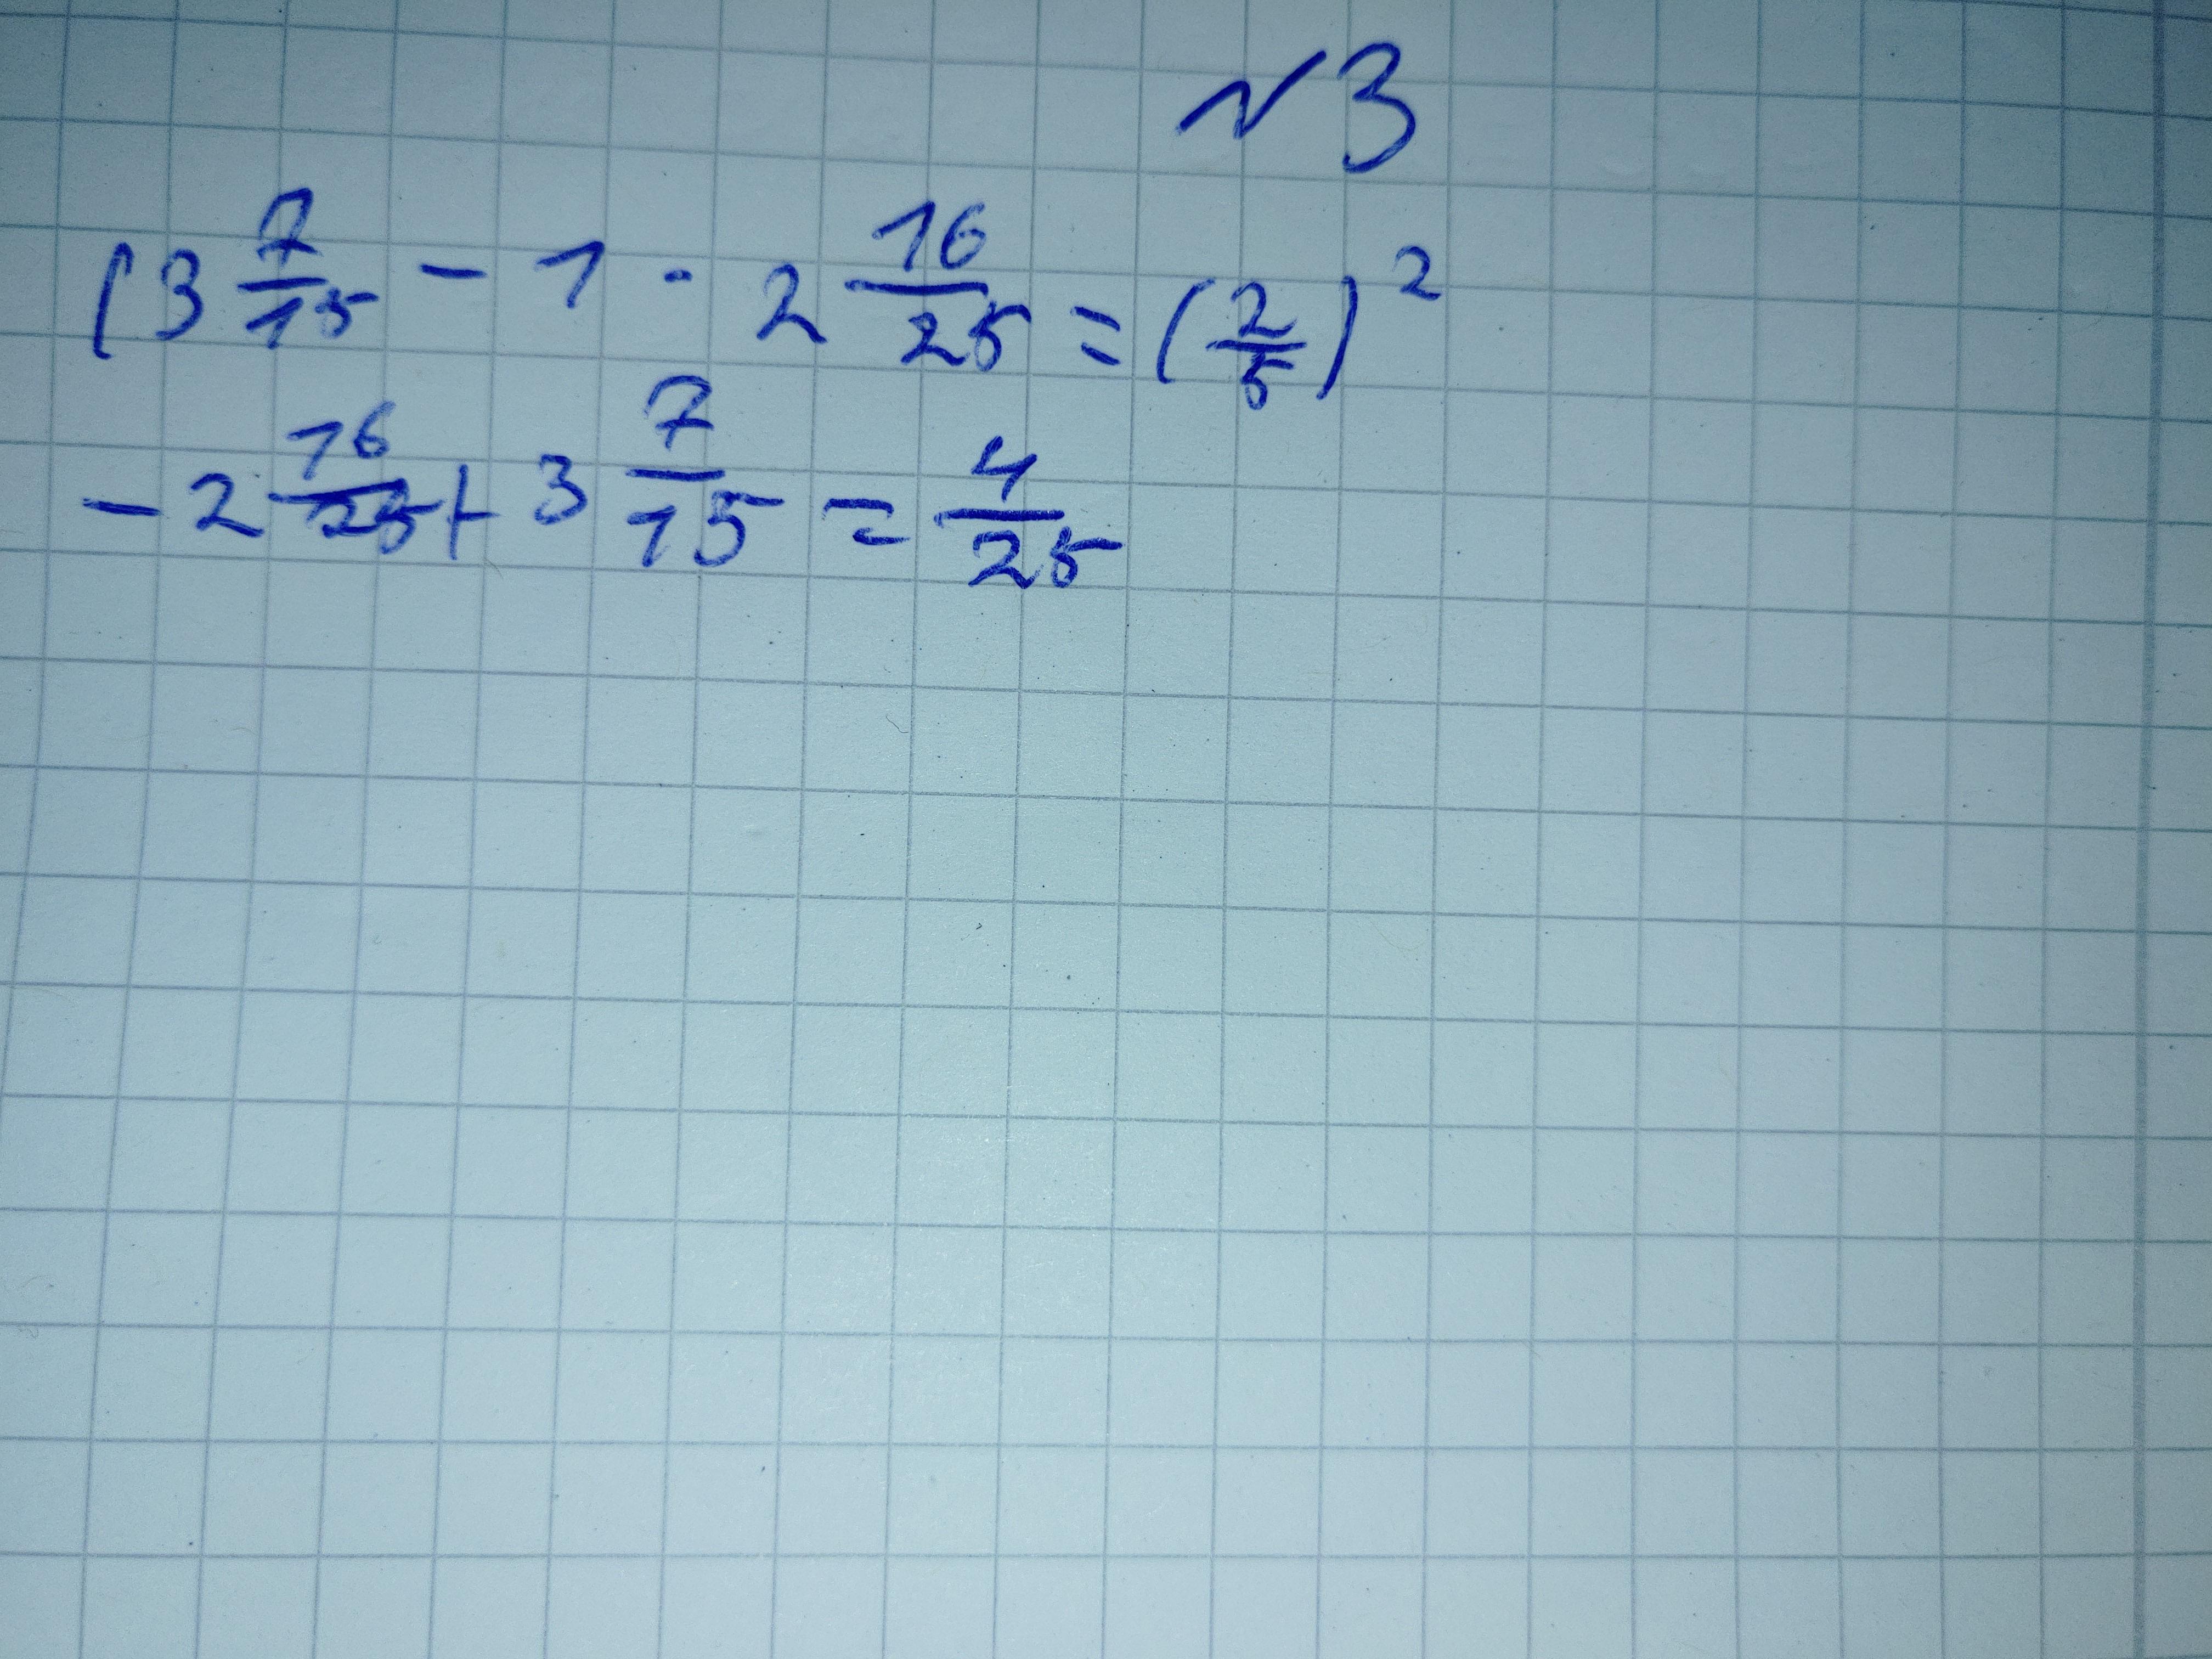 №3
(3 7/15 - 1 · 2 16/25 = (2/5)²
- 2 16/25 + 3 7/15 = 4/25